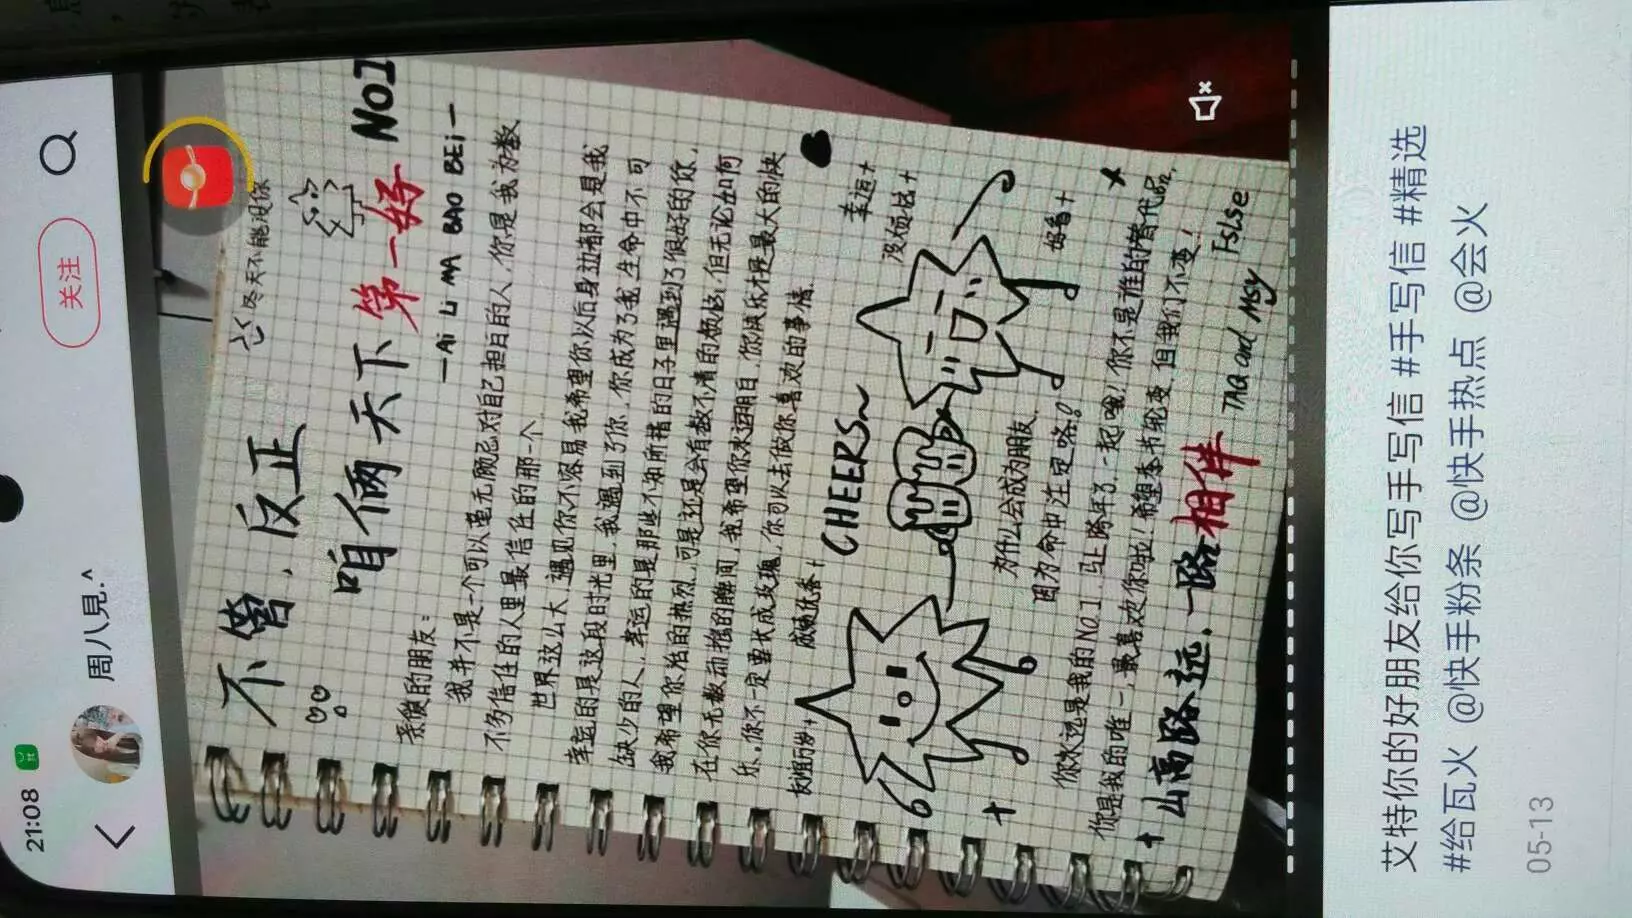 21:08
周八見.^
关注
不管，反正
冬天不能没你
咱俩天下第一好 No1
—Ai Li MA BAO BEi—
亲傲的朋友：
我并不是一个可以毫无顾忌对自己担白的人，你是我为数
不多信任的人里最信任的那一个
世界这么大，遇见你不容易我希望你以后身边都会是我
幸运的是这段时光里，我遇到了你，你成为了我生命中不可
缺少的人，幸运的是那些不如所措的日子里遇到了很好的你，
我希望你始的热烈，可是还是会有数不清的烦恼，但无论如何
在你无数动摇的瞬间，我希望你永远明目，你快乐才是最大的快
乐，你不一定要长成玫瑰，你可以去做你喜欢的事情.
友谊万岁+
成绩优秀+
CHEERS~
幸运+
没烦恼+
好看+
为什么会成为朋友
因为命中注定咯!
你永远是我的No1，马上跨年了，一起哦!你不是谁的替代品，
你是我的唯一，最喜欢你啦!希望春书轮变，但我们不变!
+山高路远，一路相伴
TAQ and Msy
艾特你的好朋友给你写手写信 #手写信 #精选
#给瓦火 @快手粉条 @快手热点 @会火
05-13